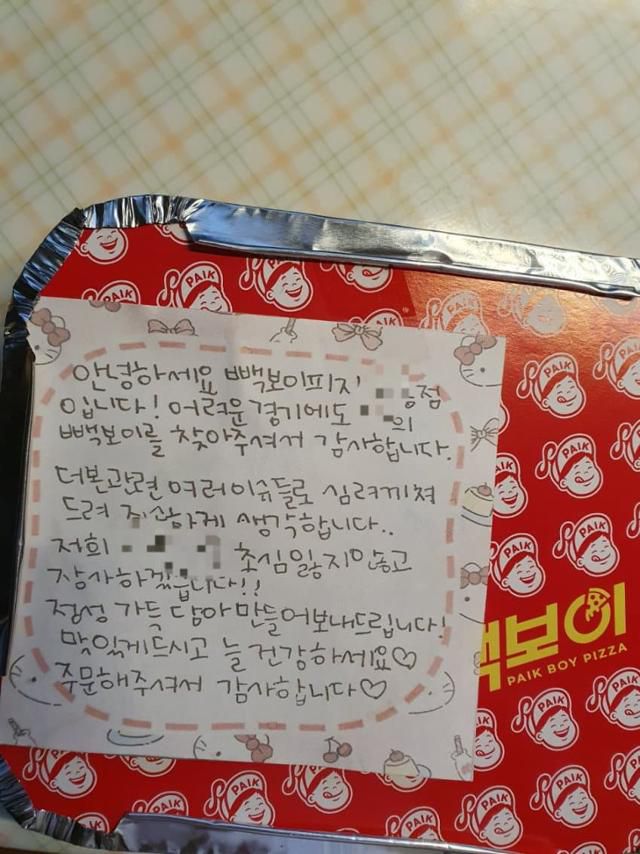 안녕하세요 빽보이피자 점
입니다! 어려운 경기에도 의
빽보이를 찾아주셔서 감사합니다.
더본관련 여러이슈들로 심려끼쳐
드려 죄산하게 생각합니다..
저희 초심잃지안고
장사하겠습니다!!
정성 가득 담아 만들어보내드립니다!
맛있게드시고 늘 건강하세요♡
주문해주셔서 감사합니다♡
빽보이
PAIK BOY PIZZA
PAIK